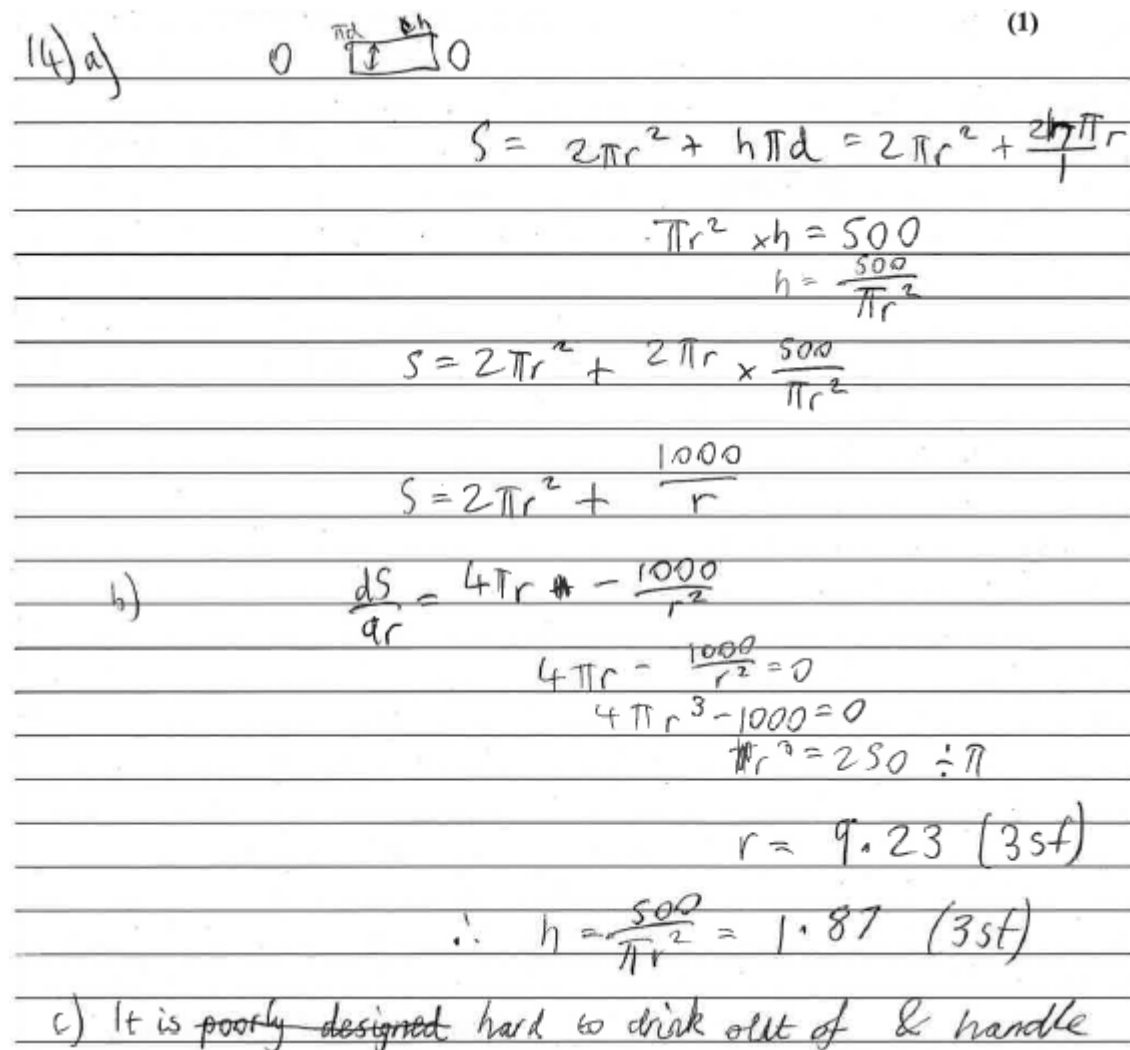 (1)
14) a) O πd h O
S = 2πr² + hπd = 2πr² + 2hπr/1
πr² × h = 500
h = 500/πr²
S = 2πr² + 2πr × 500/πr²
S = 2πr² + 1000/r
b) dS/dr = 4πr - 1000/r²
4πr - 1000/r² = 0
4πr³ - 1000 = 0
r³ = 250 ÷ π
r = 9.23 (3sf)
∴ h = 500/πr² = 1.87 (3sf)
c) It is poorly designed hard to drink out of & handle